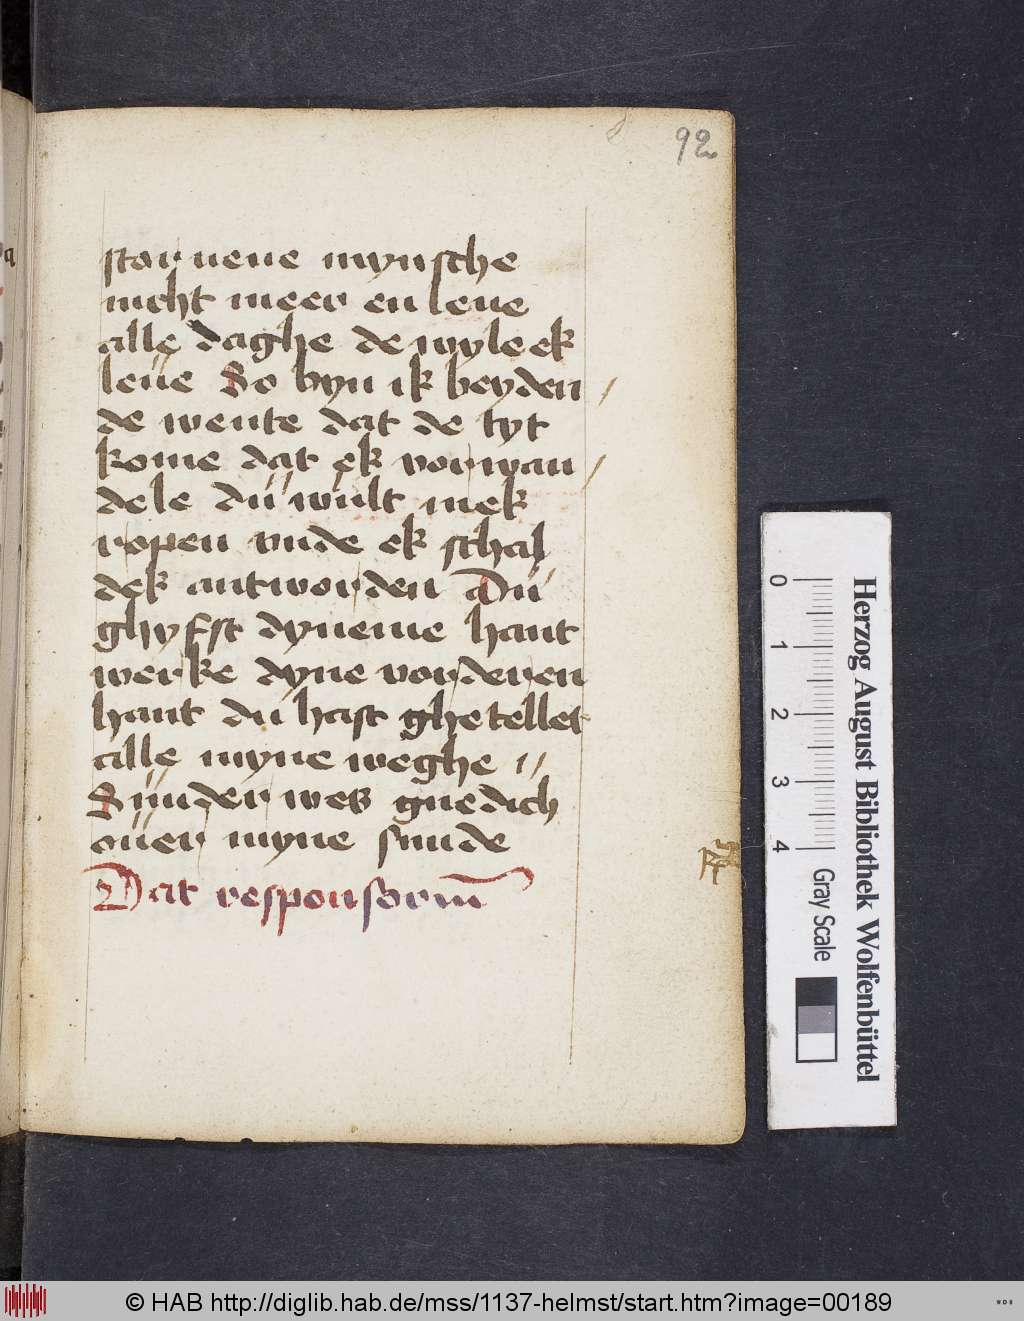 92
storuene mynsche
nicht meer en leue
alle daghe de wyle ek
leue So byn ik beyden
de wente dat de tyt
kome dat ek vorwan
dele du wult mek
ropen vnde ek schal
dek antworden Du
ghyfst dyneme hant
werke dyne vorderen
hant du hast ghetellet
alle myne weghe
Sunder wes gnedich
ouer myne sunde
Dat responsorium
0 1 2 3 4
Herzog August Bibliothek Wolfenbüttel
Gray Scale
© HAB http://diglib.hab.de/mss/1137-helmst/start.htm?image=00189